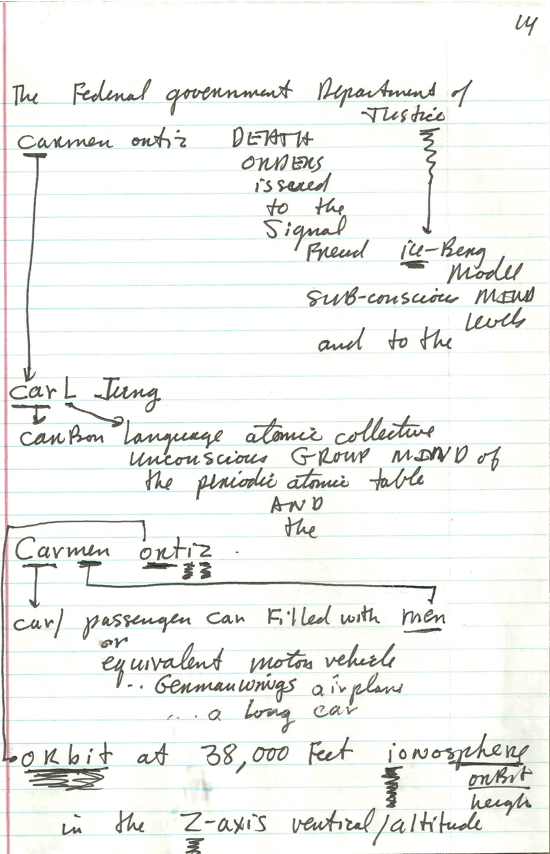 14
The Federal government Department of
Justice
Carmen ortiz DEATH
ORDERS
issued
to the
Signal
Freud ice-Berg
Model
SUB-conscious MIND
levels
and to the
Carl Jung
carBon language atomic collective
unconscious GROUP MIND of
the periodic atomic table
AND
the
Carmen ortiz .
car/ passenger car filled with men
or
equivalent motor vehicle
.. Germanwings airplane
... a long car
orbit at 38,000 Feet ionosphere
orBit
heigh
in the Z-axis vertical/altitude